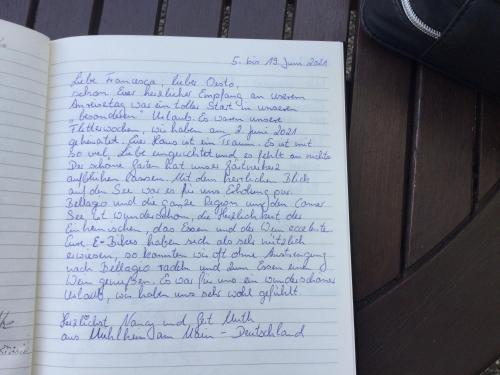 5. bis 19. Juni 2021
Liebe Francesca, lieber Oesto,
schon Euer herzlicher Empfang an unserem
Anreisetag war ein toller Start in unseren
„besonderen" Urlaub. Es waren unsere
Flitterwochen, wir haben am 2. Juni 2021
geheiratet. Euer Haus ist ein Traum. Es ist mit
so viel Liebe eingerichtet und es fehlt an nichts
Der schöne Garten hat unser Gärtnerherz
aufblühen lassen. Mit dem herrlichen Blick
auf den See war es für uns Erholung pur.
Bellagio und die ganze Region um den Comer
See, ist wunderschön, die Herzlichkeit der
Einheimischen, das Essen und der Wein excellente.
Eure E-Bikes haben sich als sehr nützlich
erwiesen, so konnten wir oft ohne Anstrengung
nach Bellagio radeln und zum Essen einen
Wein genießen. Es war für uns ein wunderschöner
Urlaub, wir haben uns sehr wohl gefühlt.
Herzlichst Nancy und Gert Muth
aus Mühlheim am Main - Deutschland